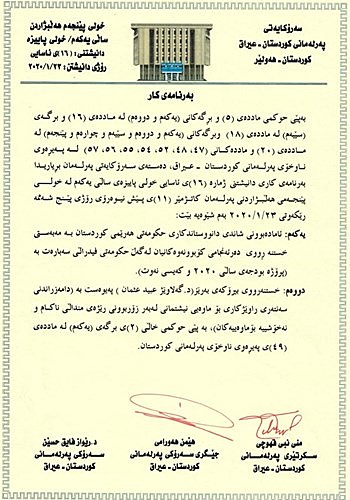 سەرۆکایەتی
پەرلەمانی کوردستان - عیراق
کوردستان - هەولێر
خولی پێنجەم هەڵبژاردن
ساڵی یەکەم/ خولی پاییزە
دانیشتنی: (١٦)ی ئاسایی
رۆژی دانیشتن: ٢٠٢٠/١/٢٣
بەرنامەی کار
بەپێی حوکمی ماددەی (٥) و برگەکانی (یەکەم و دووەم) لە ماددەی (١٦) و برگەی
(سێیەم) لە ماددەی (١٨) وبرگەکانی (یەکەم و دووەم و سێیەم و چوارەم و پێنجەم) لە
ماددەی (٢٠) و ماددەکانی (٤٧، ٤٨، ٥٢، ٥٤، ٥٥، ٥٦، ٥٧) لە پەیرەوی
ناوخۆی پەرلەمانی کوردستان - عیراق، دەستەی سەرۆکایەتی پەرلەمان بریاریدا
بەرنامەی کاری دانیشتنی ژمارە (١٦)ی ئاسایی خولی پاییزەی ساڵی یەکەم لە خولی
پێنجەمی هەڵبژاردنی پەرلەمان کاتژمێر (١١)ی پێش نیوەرۆی رۆژی پێنج شەممە
رێکەوتی ٢٠٢٠/١/٢٣ بەم شێوەیە بێت:
یەکەم: ئامادەبوونی شاندی دانووستاندکاری حکومەتی هەرێمی کوردستان بە مەبەستی
خستنە رووی دەرئەنجامی کۆبوونەوەکانیان لەگەڵ حکومەتی فیدراڵی سەبارەت بە
(پرۆژە بودجەی ساڵی ٢٠٢٠ و کەیسی نەوت).
دووەم: خستنەرووی بیرۆکەی بەرێز(د.گەلاوێژ عبید عثمان) پەیوەست بە (دامەزراندنی
سەنتەری راوێژکاری بۆ ماوەیی نیشتمانی لەبەر زۆربوونی رێژەی منداڵی ناکام و
نەخۆشییە بۆماوەییەکان)، بە پێی حوکمی خاڵی (٢)ی برگەی (یەکەم) لە ماددەی
(٤٩)ی پەیرەوی ناوخۆی پەرلەمانی کوردستان.
منی نبی قهوچی
سکرتێری پەرلەمانی
کوردستان - عیراق
هێمن هەورامی
جێگری سەرۆکی پەرلەمانی
کوردستان - عیراق
د.رێواز فایق حسێن
سەرۆکی پەرلەمانی
کوردستان - عیراق